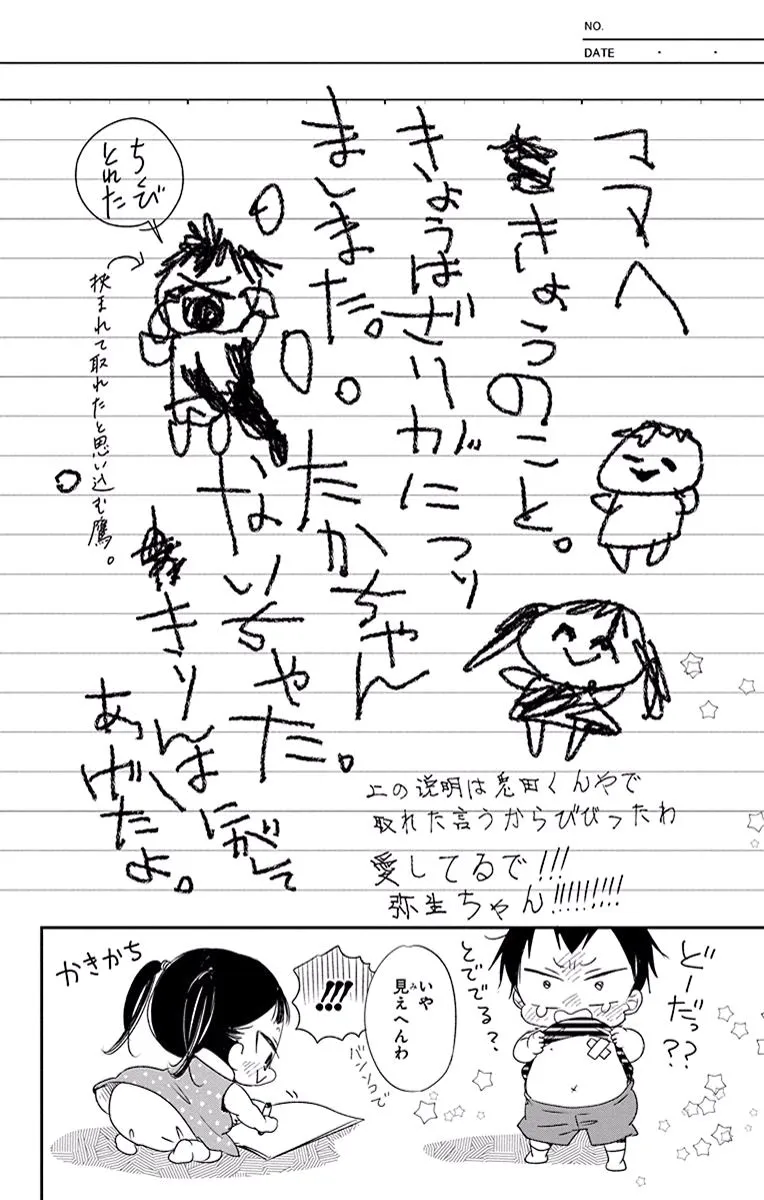 NO.
DATE
ママへ
きょうのこと。
きょうはざりがにつり
ましまた。
たかちゃん
ないちゃた。
きりんはにがして
あげたよ。
ちくび
とれた
挟まれて取れたと思い込む鷹。
上の説明は兎田くんやで
取れた言うからびびったわ
愛してるで!!!
弥生ちゃん!!!!!!!!!
どーだっ??
とででる?
いや
見えへんわ
み
バンソコで
!!!
かきかち